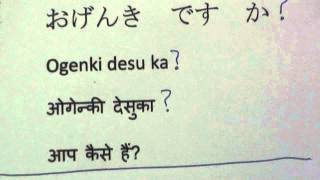 おげんき　です　か?
Ogenki desu ka?
ओगेन्की देसुका ?
आप कैसे हैं?